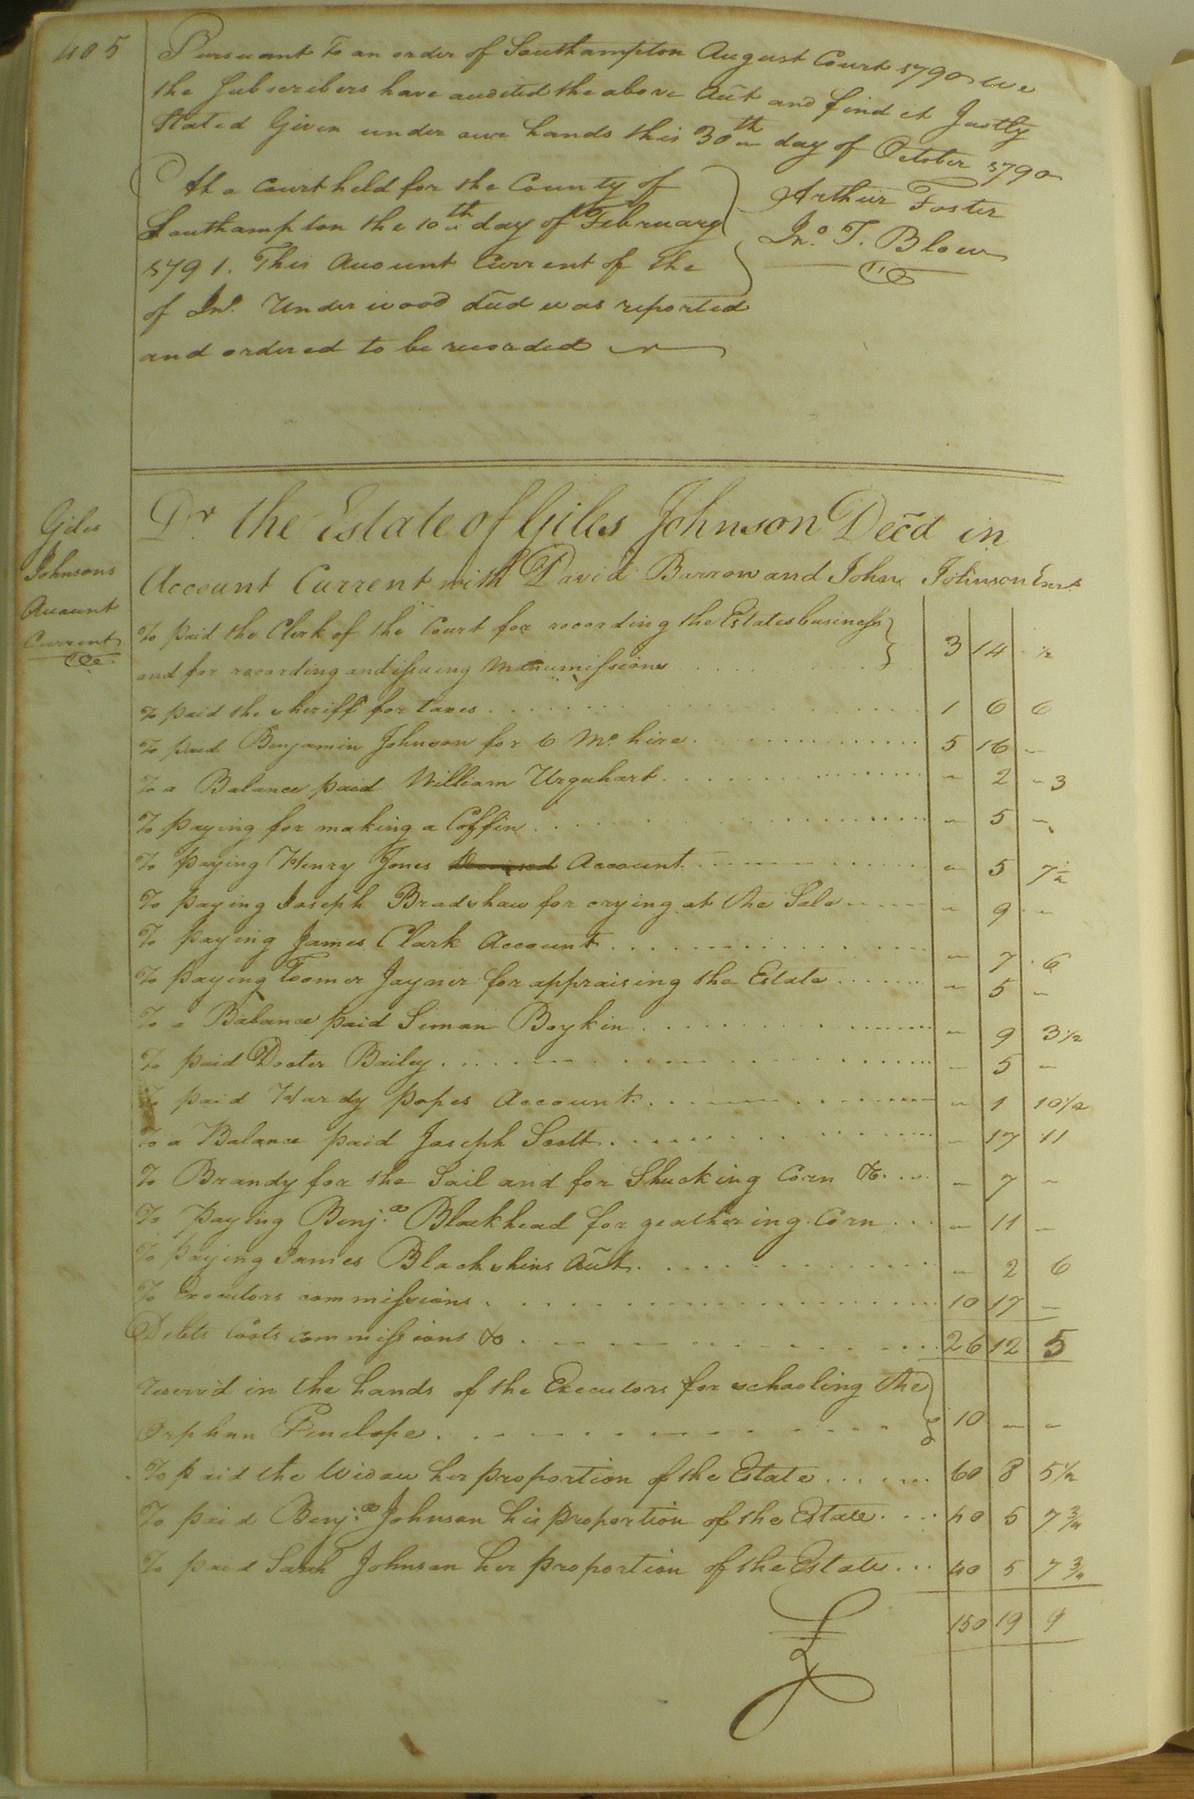 405
Pursuant to an order of Southampton August Court 1790 we
the Subscribers have audited the above Acct and find it Justly
Stated Given under our hands this 30th day of October 1790
Arthur Foster
Jno. T. Blow
At a Court held for the County of
Southampton the 10th day of February
1791. This Account Current of the
of Jno. Underwood decd was reported
and ordered to be recorded
Giles
Johnsons
Account
Current
Dr. the Estate of Giles Johnson Decd in
Account Current with David Barrow and John Johnson Exrs
To paid the Clerk of the Court for recording the Estates business
and for recording and issuing Manumissions 3 14 ½
To paid the sheriff for taxes 1 6 6
To paid Benjamin Johnson for 6 Mo. hire 5 16 -
To a Balance paid William Urquhart - 2 - 3
To paying for making a Coffin - 5 -
To paying Henry Jones Account - 5 7½
To paying Joseph Bradshaw for crying at the Sale - 9 -
To paying James Clark Account - 7 6
To paying Toomer Jayner for appraising the Estate - 5 -
To a Balance paid Simon Boykin - 9 3½
To paid Docter Bailey - 5 -
To paid Hardy popes Account - 1 10½
To a Balance paid Joseph Scott - 17 11
To Brandy for the Sail and for Shucking Corn &c. - 7 -
To Paying Benj.a Blackhead for geathering Corn - 11 -
To paying James Blackshins Acct - 2 6
To Executors commissions 10 17 -
Debts Costs commissions &c 26 12 5
reserv'd in the hands of the Executors for schooling the
Orphan Penelope 10 - -
To paid the Widow her proportion of the Estate 60 8 5½
To paid Benj.a Johnson his proportion of the Estate 40 5 7¾
To paid Sarah Johnson her proportion of the Estate 40 5 7¾
£ 150 19 9